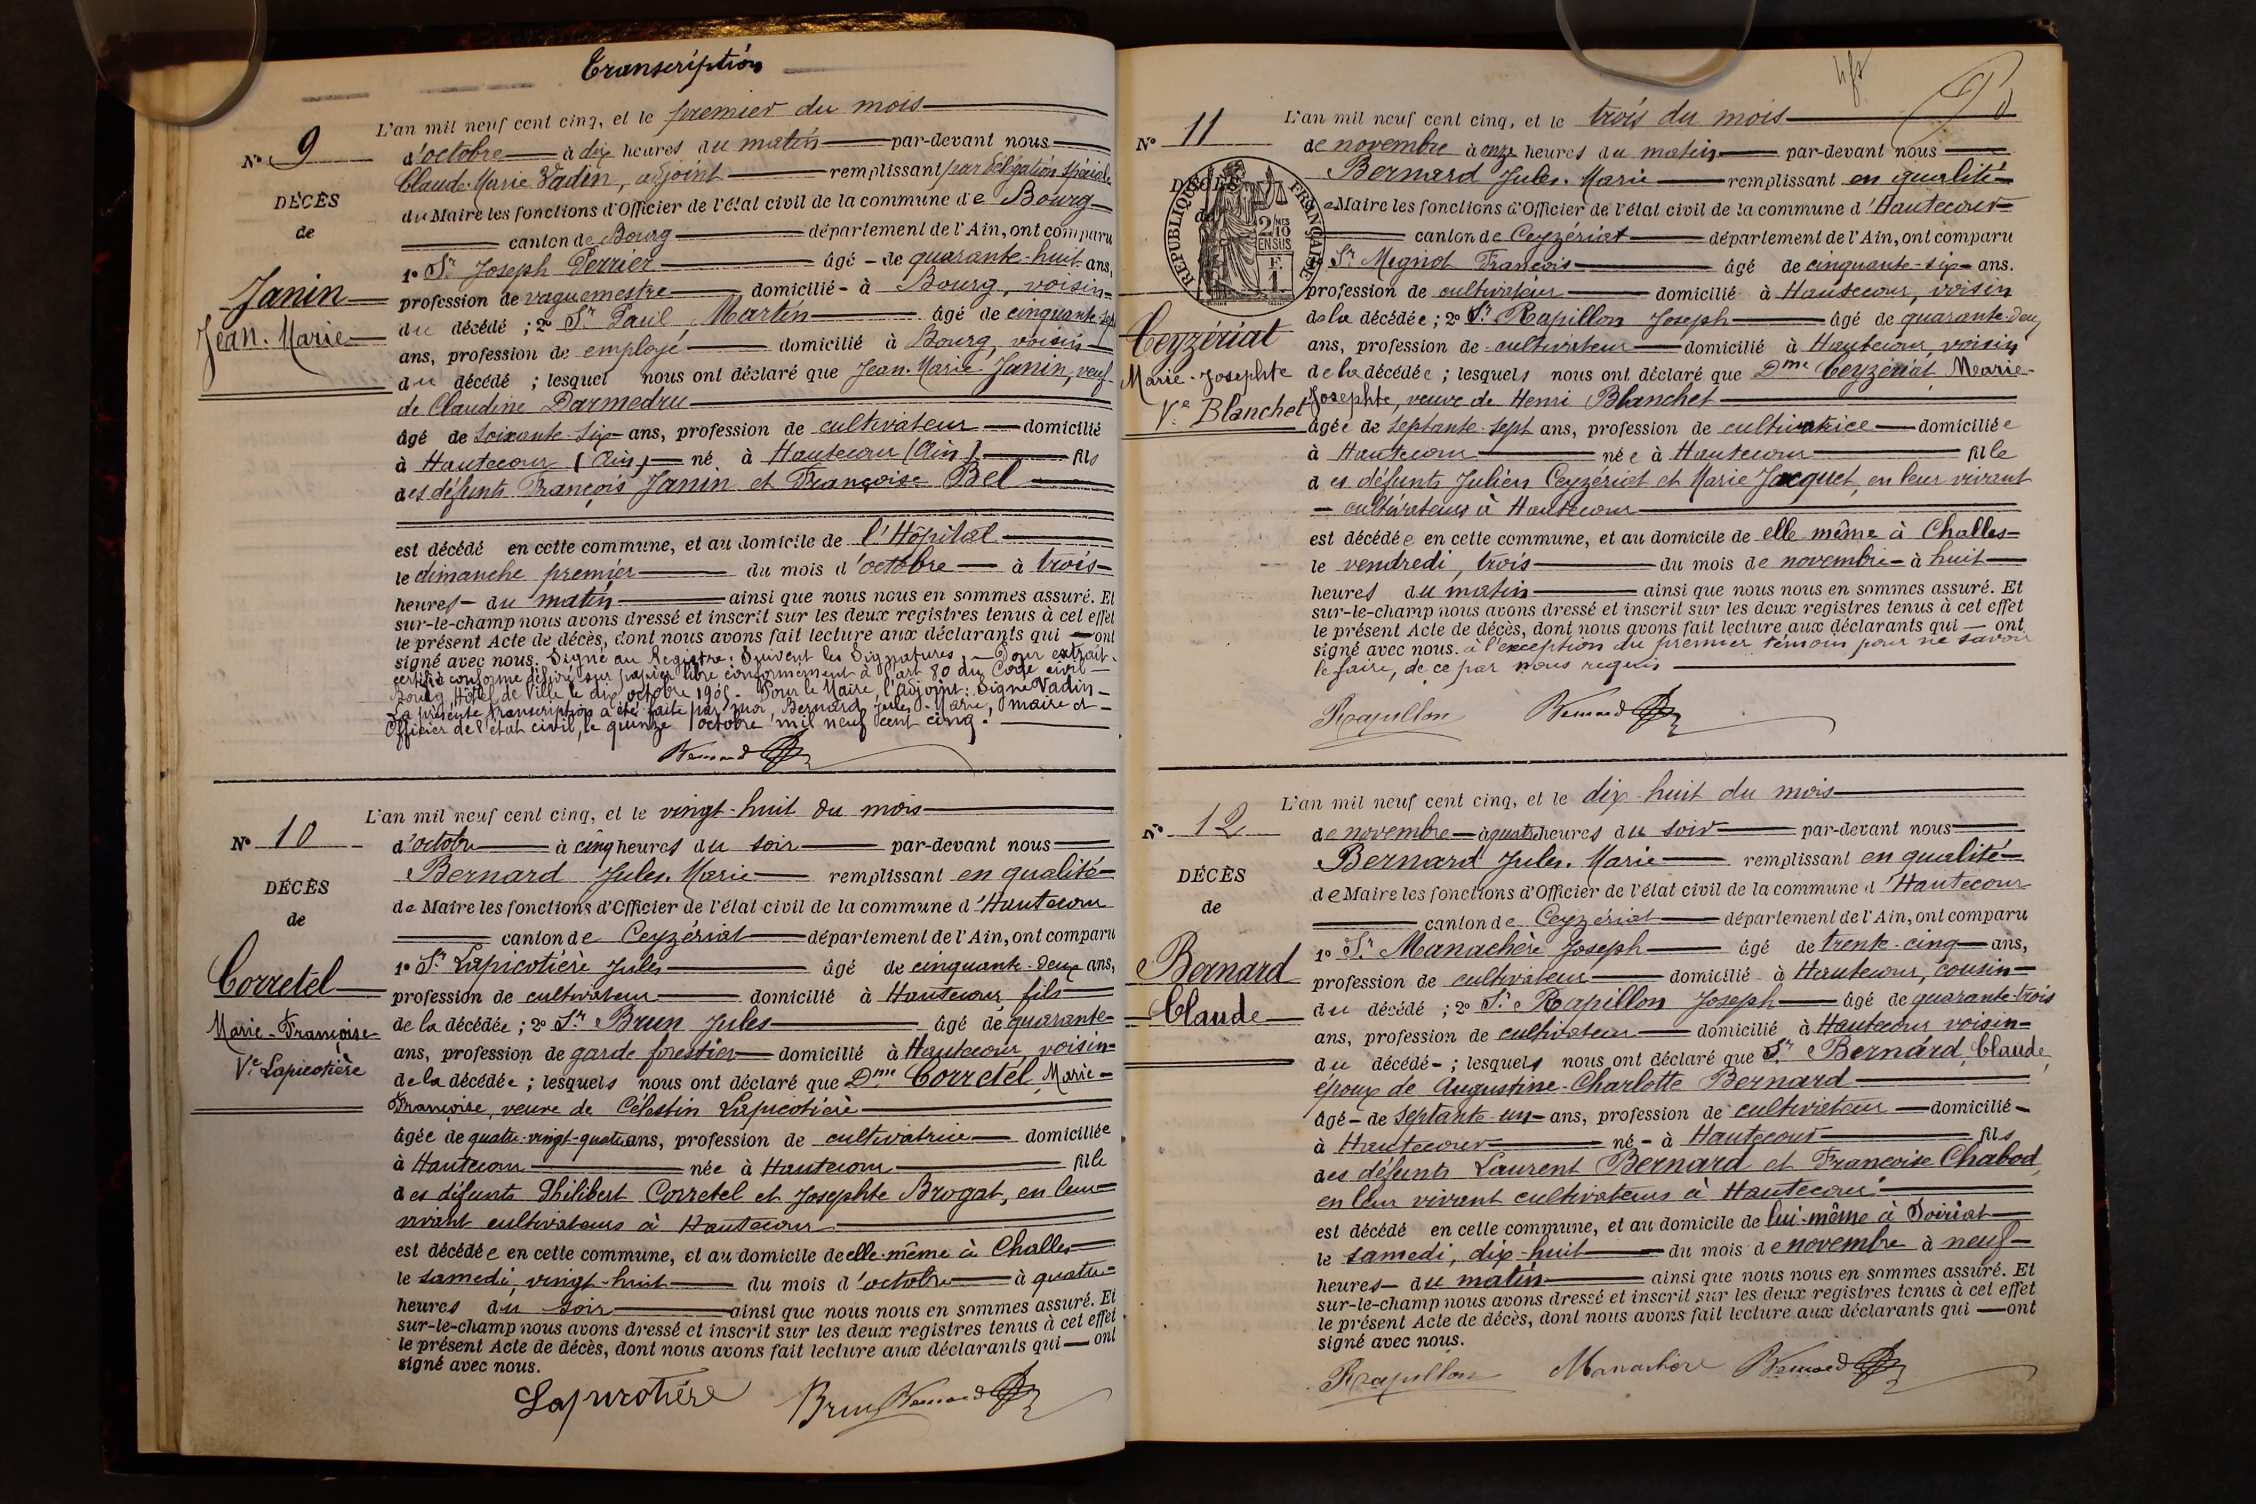 Transcription
N° 9
DÉCÈS
de
Janin
Jean-Marie
L'an mil neuf cent cinq, et le premier du mois
d'octobre à dix heures du matin par-devant nous
Claude-Marie Vadin, adjoint remplissant par délégation spéciale
du Maire les fonctions d'Officier de l'état civil de la commune de Bourg
canton de Bourg département de l'Ain, ont comparu
1° Sr Joseph Perrier âgé de quarante-huit ans,
profession de vaguemestre domicilié à Bourg, voisin
du décédé ; 2° Sr Paul Martin âgé de cinquante-sept
ans, profession de employé domicilié à Bourg, voisin
du décédé ; lesquel nous ont déclaré que Jean-Marie Janin, veuf
de Claudine Darmedru
âgé de soixante-six ans, profession de cultivateur domicilié
à Hautecour (Ain) né à Hautecour (Ain) fils
des défunts François Janin et Françoise Bel
est décédé en cette commune, et au domicile de l'Hôpital
le dimanche premier du mois d'octobre à trois
heures du matin ainsi que nous nous en sommes assuré. Et
sur-le-champ nous avons dressé et inscrit sur les deux registres tenus à cet effet
le présent Acte de décès, dont nous avons fait lecture aux déclarants qui ont
signé avec nous. Signé au Registre: Suivent les Signatures. Pour extrait
certifié conforme délivré sur papier libre conformément à l'art 80 du Code civil
Bourg, Hôtel de Ville le dix octobre 1905. Pour le Maire, l'adjoint: Signé Vadin
La présente transcription a été faite par moi, Bernard Jules-Marie, maire et
Officier de l'état civil, le quinze octobre mil neuf cent cinq.
Bernard
N° 10
DÉCÈS
de
Corretel
Marie-Françoise
Ve Lapicotière
L'an mil neuf cent cinq, et le vingt-huit du mois
d'octobre à cinq heures du soir par-devant nous
Bernard Jules-Marie remplissant en qualité
de Maire les fonctions d'Officier de l'état civil de la commune d'Hautecour
canton de Ceyzériat département de l'Ain, ont comparu
1° Sr Lapicotière Jules âgé de cinquante-deux ans,
profession de cultivateur domicilié à Hautecour fils
de la décédée ; 2° Sr Brun Jules âgé de quarante
ans, profession de garde forestier domicilié à Hautecour voisin
de la décédée ; lesquels nous ont déclaré que Dme Corretel Marie-
Françoise, veuve de Célestin Lapicotière
âgée de quatre-vingt-quatre ans, profession de cultivatrice domiciliée
à Hautecour née à Hautecour fille
des défunts Philibert Corretel et Josephte Brogat, en leur
vivant cultivateurs à Hautecour
est décédée en cette commune, et au domicile de elle-même à Challes
le samedi, vingt-huit du mois d'octobre à quatre
heures du soir ainsi que nous nous en sommes assuré. Et
sur-le-champ nous avons dressé et inscrit sur les deux registres tenus à cet effet
le présent Acte de décès, dont nous avons fait lecture aux déclarants qui ont
signé avec nous.
Lapicotière Brun Bernard
N° 11
DÉCÈS
de
RÉPUBLIQUE FRANÇAISE
2/10 MES
EN SUS
Ceyzériat
Marie-Josephte
Ve Blanchet
L'an mil neuf cent cinq, et le trois du mois
de novembre à onze heures du matin par-devant nous
Bernard Jules-Marie remplissant en qualité
e Maire les fonctions d'Officier de l'état civil de la commune d'Hautecour
canton de Ceyzériat département de l'Ain, ont comparu
Sr Mignot François âgé de cinquante-six ans.
profession de cultivateur domicilié à Hautecour, voisin
de la décédée ; 2° Sr Rapillon Joseph âgé de quarante-deux
ans, profession de cultivateur domicilié à Hautecour, voisin
de la décédée ; lesquels nous ont déclaré que Dme Ceyzériat Marie-
Josephte, veuve de Henri Blanchet
âgée de septante-sept ans, profession de cultivatrice domiciliée
à Hautecour née à Hautecour fille
des défunts Julien Ceyzériat et Marie Jacquet, en leur vivant
cultivateurs à Hautecour
est décédée en cette commune, et au domicile de elle même à Challes
le vendredi, trois du mois de novembre à huit
heures du matin ainsi que nous nous en sommes assuré. Et
sur-le-champ nous avons dressé et inscrit sur les deux registres tenus à cet effet
le présent Acte de décès, dont nous avons fait lecture aux déclarants qui ont
signé avec nous. à l'exception du premier témoin pour ne savoir
le faire, de ce par nous requis
Rapillon Bernard
N° 12
DÉCÈS
de
Bernard
Claude
L'an mil neuf cent cinq, et le dix-huit du mois
de novembre à quatre heures du soir par-devant nous
Bernard Jules-Marie remplissant en qualité
de Maire les fonctions d'Officier de l'état civil de la commune d'Hautecour
canton de Ceyzériat département de l'Ain, ont comparu
1° Sr Manachère Joseph âgé de trente-cinq ans,
profession de cultivateur domicilié à Hautecour, cousin
du décédé ; 2° Sr Rapillon Joseph âgé de quarante-trois
ans, profession de cultivateur domicilié à Hautecour voisin
du décédé ; lesquels nous ont déclaré que Sr Bernard Claude,
époux de Augustine-Charlotte Bernard
âgé de septante-un ans, profession de cultivateur domicilié
à Hautecour né à Hautecour fils
des défunts Laurent Bernard et Françoise Chabod,
en leur vivant cultivateurs à Hautecour
est décédé en cette commune, et au domicile de lui-même à Soiriat
le samedi, dix-huit du mois de novembre à neuf
heures du matin ainsi que nous nous en sommes assuré. Et
sur-le-champ nous avons dressé et inscrit sur les deux registres tenus à cet effet
le présent Acte de décès, dont nous avons fait lecture aux déclarants qui ont
signé avec nous.
Rapillon Manachère Bernard